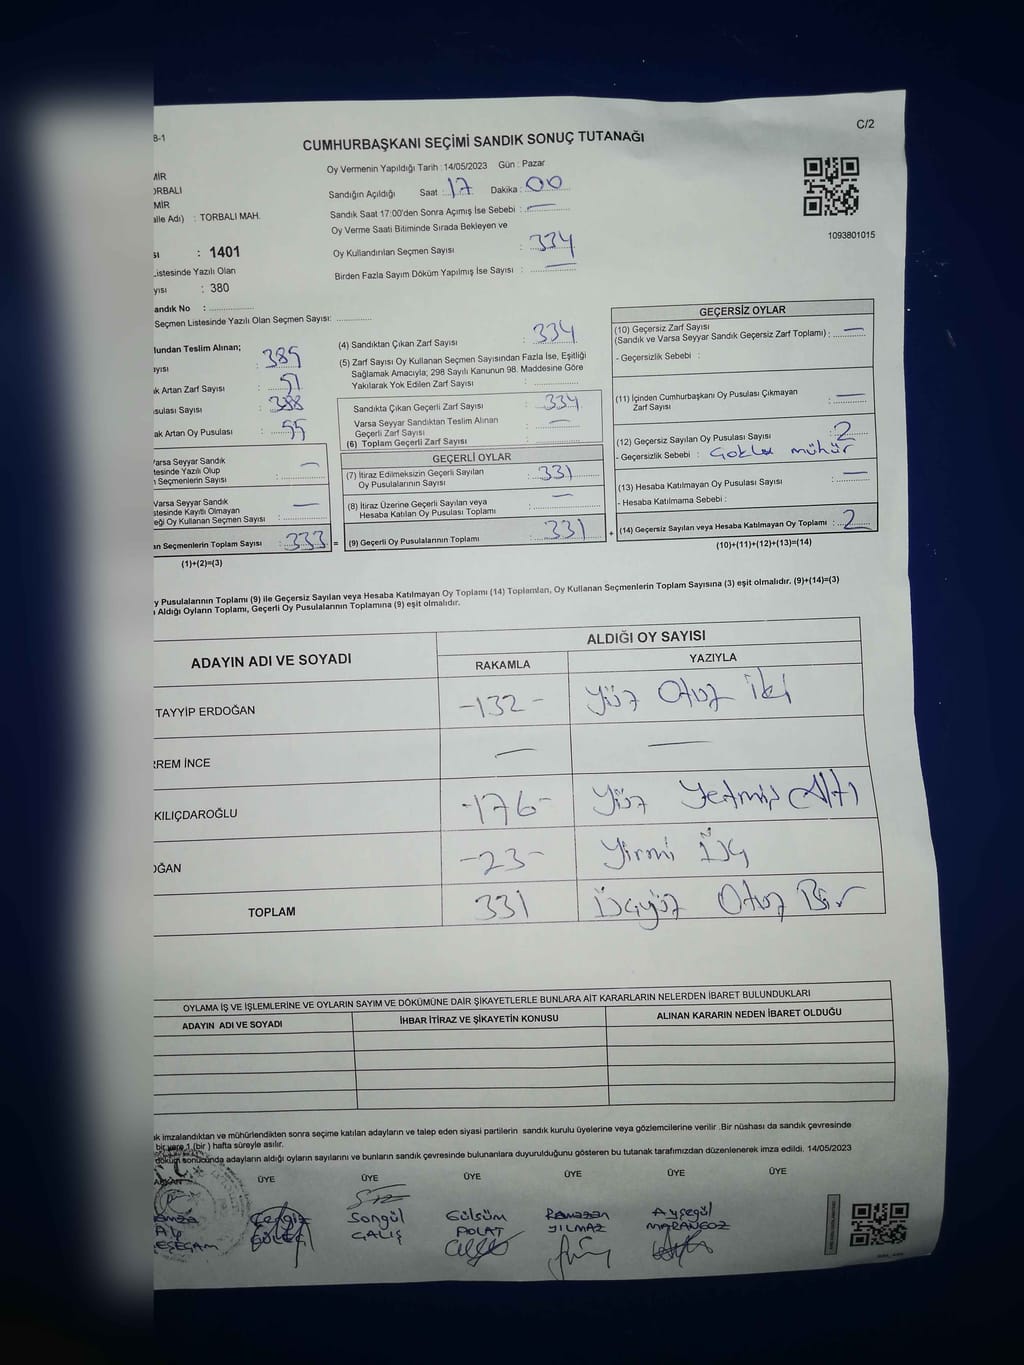 8-1
C/2
CUMHURBAŞKANI SEÇİMİ SANDIK SONUÇ TUTANAĞI
Oy Vermenin Yapıldığı Tarih : 14/05/2023 Gün : Pazar
Sandığın Açıldığı Saat : 17 Dakika : 00
Sandık Saat 17:00'den Sonra Açımış İse Sebebi : —
Oy Verme Saati Bitiminde Sırada Bekleyen ve
Oy Kullandırılan Seçmen Sayısı : 334
Birden Fazla Sayım Döküm Yapılmış İse Sayısı : —
1093801015
MİR
ORBALI
MİR
alle Adı) : TORBALI MAH.
sı : 1401
Listesinde Yazılı Olan
yısı : 380
andık No :
Seçmen Listesinde Yazılı Olan Seçmen Sayısı:
lundan Teslim Alınan;
ayısı : 385
ık Artan Zarf Sayısı : 51
sulası Sayısı : 388
ak Artan Oy Pusulası : 55
Varsa Seyyar Sandık
tesinde Yazılı Olup
n Seçmenlerin Sayısı : —
Varsa Seyyar Sandık
stesinde Kayıtlı Olmayan
eği Oy Kullanan Seçmen Sayısı : —
an Seçmenlerin Toplam Sayısı : 333 =
(1)+(2)=(3)
(4) Sandıktan Çıkan Zarf Sayısı : 334
(5) Zarf Sayısı Oy Kullanan Seçmen Sayısından Fazla İse, Eşitliği
Sağlamak Amacıyla; 298 Sayılı Kanunun 98. Maddesine Göre
Yakılarak Yok Edilen Zarf Sayısı :
Sandıkta Çıkan Geçerli Zarf Sayısı : 334
Varsa Seyyar Sandıktan Teslim Alınan
Geçerli Zarf Sayısı : —
(6) Toplam Geçerli Zarf Sayısı :
GEÇERLİ OYLAR
(7) İtiraz Edilmeksizin Geçerli Sayılan
Oy Pusulalarının Sayısı : 331
(8) İtiraz Üzerine Geçerli Sayılan veya
Hesaba Katılan Oy Pusulası Toplamı : —
(9) Geçerli Oy Pusulalarının Toplamı : 331 +
GEÇERSİZ OYLAR
(10) Geçersiz Zarf Sayısı
(Sandık ve Varsa Seyyar Sandık Geçersiz Zarf Toplamı) : —
- Geçersizlik Sebebi :
(11) İçinden Cumhurbaşkanı Oy Pusulası Çıkmayan
Zarf Sayısı : —
(12) Geçersiz Sayılan Oy Pusulası Sayısı : 2
- Geçersizlik Sebebi : Çoklu mühür
(13) Hesaba Katılmayan Oy Pusulası Sayısı : —
- Hesaba Katılmama Sebebi :
(14) Geçersiz Sayılan veya Hesaba Katılmayan Oy Toplamı : 2
(10)+(11)+(12)+(13)=(14)
y Pusulalarının Toplamı (9) ile Geçersiz Sayılan veya Hesaba Katılmayan Oy Toplamı (14) Toplamları, Oy Kullanan Seçmenlerin Toplam Sayısına (3) eşit olmalıdır. (9)+(14)=(3)
ı Aldığı Oyların Toplamı, Geçerli Oy Pusulalarının Toplamına (9) eşit olmalıdır.
ADAYIN ADI VE SOYADI
ALDIĞI OY SAYISI
RAKAMLA YAZIYLA
TAYYİP ERDOĞAN -132- Yüz Otuz iki
RREM İNCE — —
KILIÇDAROĞLU -176- Yüz Yetmiş Altı
OĞAN -23- Yirmi Üç
TOPLAM 331 Üçyüz Otuz Bir
OYLAMA İŞ VE İŞLEMLERİNE VE OYLARIN SAYIM VE DÖKÜMÜNE DAİR ŞİKAYETLERLE BUNLARA AİT KARARLARIN NELERDEN İBARET BULUNDUKLARI
ADAYIN ADI VE SOYADI İHBAR İTİRAZ VE ŞİKAYETİN KONUSU ALINAN KARARIN NEDEN İBARET OLDUĞU
ık imzalandıktan ve mühürlendikten sonra seçime katılan adayların ve talep eden siyasi partilerin sandık kurulu üyelerine veya gözlemcilerine verilir .Bir nüshası da sandık çevresinde
bir yere 1 (bir ) hafta süreyle asılır.
döküm sonucunda adayların aldığı oyların sayılarını ve bunların sandık çevresinde bulunanlara duyurulduğunu gösteren bu tutanak tarafımızdan düzenlenerek imza edildi. 14/05/2023
ÜYE ÜYE ÜYE ÜYE ÜYE ÜYE
Cengiz Songül Gülsüm Ramazan Ayşegül
GÜLEÇ ÇALIŞ POLAT YILMAZ MARANGOZ